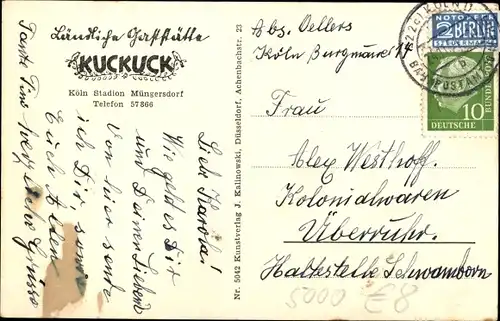 Ländliche Gaststätte
KUCKUCK
Köln Stadion Müngersdorf
Telefon 57866
Liebe Karola!
Wie geht es Dir
und Deinen Lieben
Von hier sende
ich Dir, sowie
Euch Allen
herzliche Grüsse
Tante Tine
Nr. 5042 Kunstverlag J. Kalinowski, Düsseldorf, Achenbachstr. 23
Abs. Oellers
Köln Burgmauer 14
Frau
Alex Westhoff.
Kolonialwaren
Überruhr.
Haltestelle Schwamborn
NOTOPFER
2 BERLIN
STEUERMARKE
(22c) KÖLN
BAHNPOSTAMT
b
10
DEUTSCHE BUNDESPOST
5000 E8